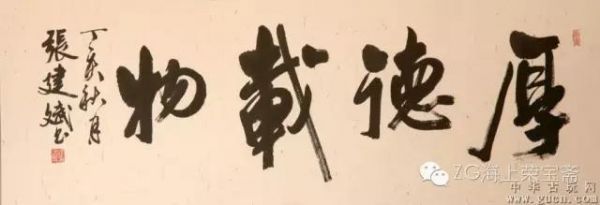 厚德載物
丁亥秋月
張建斌书
ZG海上荣宝斋
中华古玩网
www.gucn.com